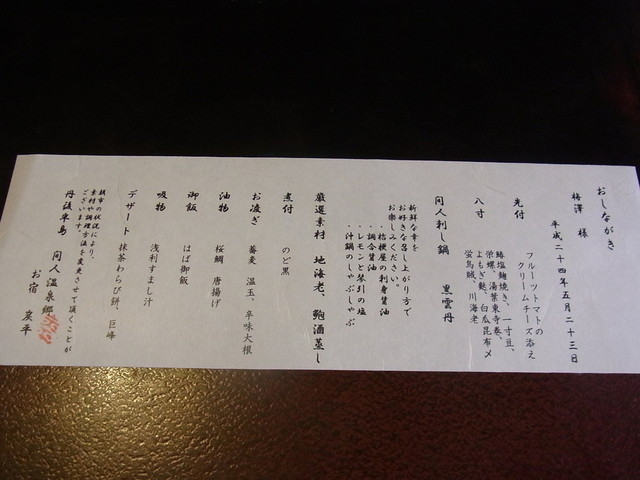 おしながき
梅澤 様
平成二十四年五月二十三日
先付
フルーツトマトの
クリームチーズ添え
八寸
鰆塩麹焼き、一寸豆、
栄螺、湯葉東寺巻、
よもぎ麩、白瓜昆布〆
蛍烏賊、川海老
間人刺し鍋 黒雲丹
新鮮な幸を
お好きな召し上がり方で
お楽しみください。
・桔梗屋の刺身醤油
・調合醤油
・レモンと琴引の塩
・汁鍋のしゃぶしゃぶ
厳選素材 地海老、鮑酒蒸し
煮付
のど黒
お凌ぎ
蕎麦 温玉、辛味大根
油物
桜鯛 唐揚げ
御飯
はば御飯
吸物
浅利すまし汁
デザート
抹茶わらび餅、巨峰
朝市の状況により、
素材や調理方法を変更させて頂くことが
ございます。
丹後半島 間人温泉郷
お宿 炭平